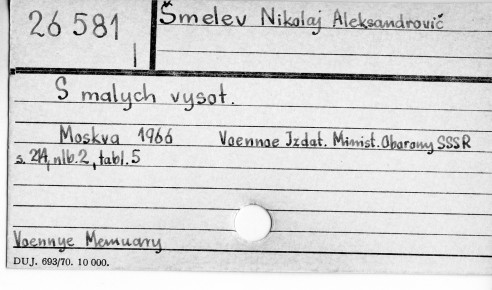 26 581
Šmelev Nikolaj Aleksandrovič
S malych vysot.
Moskva 1966 Voennoe Izdat. Minist. Oborony SSSR
s. 214, nlb. 2, tabl. 5
Voennye Memuary
DUJ. 693/70. 10 000.